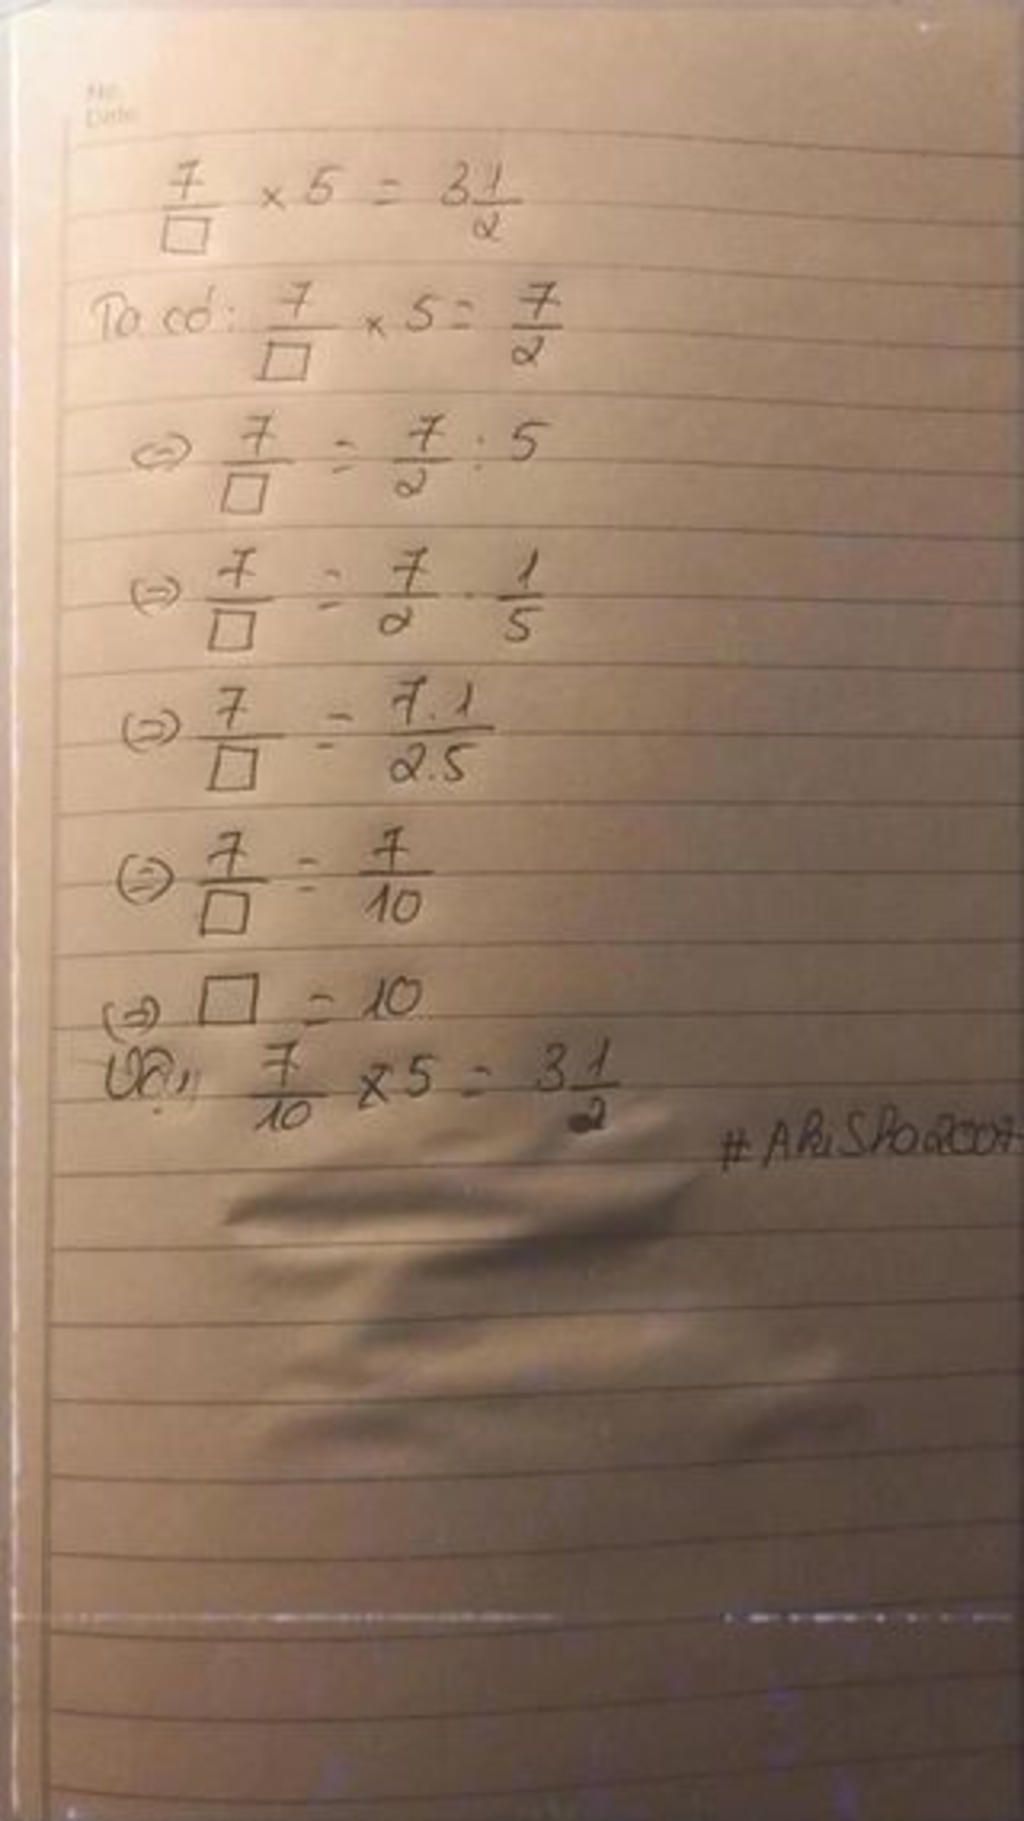 No.
Date
7/□ × 5 = 3 1/2
Ta có: 7/□ × 5 = 7/2
(=) 7/□ = 7/2 : 5
(=) 7/□ = 7/2 . 1/5
(=) 7/□ = 7.1/2.5
(=) 7/□ = 7/10
(=) □ = 10
Vậy 7/10 × 5 = 3 1/2